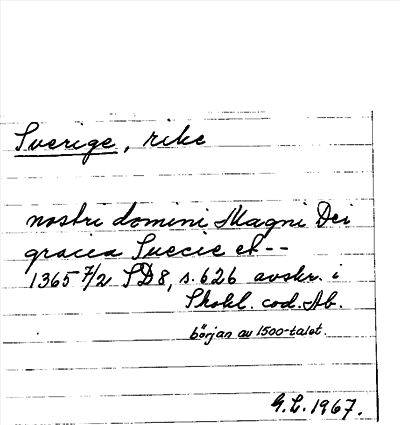 Sverige, rike
nostri domini Magni Dei
gracia Suecie et --
1365 7/2 SD8, s. 626 avskr. i
Skokl. cod. Ab.
början av 1500-talet.
G.L. 1967.